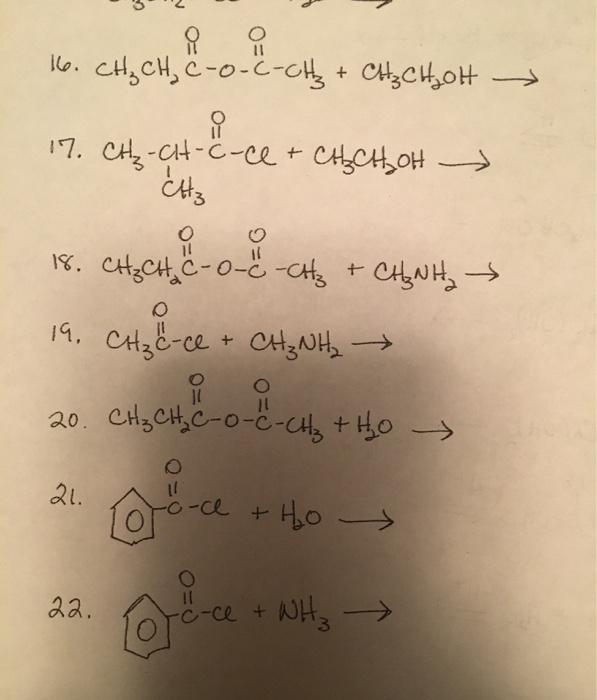 16. CH₃CH₂C(=O)-O-C(=O)-CH₃ + CH₃CH₂OH →
17. CH₃-CH(CH₃)-C(=O)-Cl + CH₃CH₂OH →
18. CH₃CH₂C(=O)-O-C(=O)-CH₃ + CH₃NH₂ →
19. CH₃C(=O)-Cl + CH₃NH₂ →
20. CH₃CH₂C(=O)-O-C(=O)-CH₃ + H₂O →
21. C(=O)-Cl + H₂O →
22. C(=O)-Cl + NH₃ →